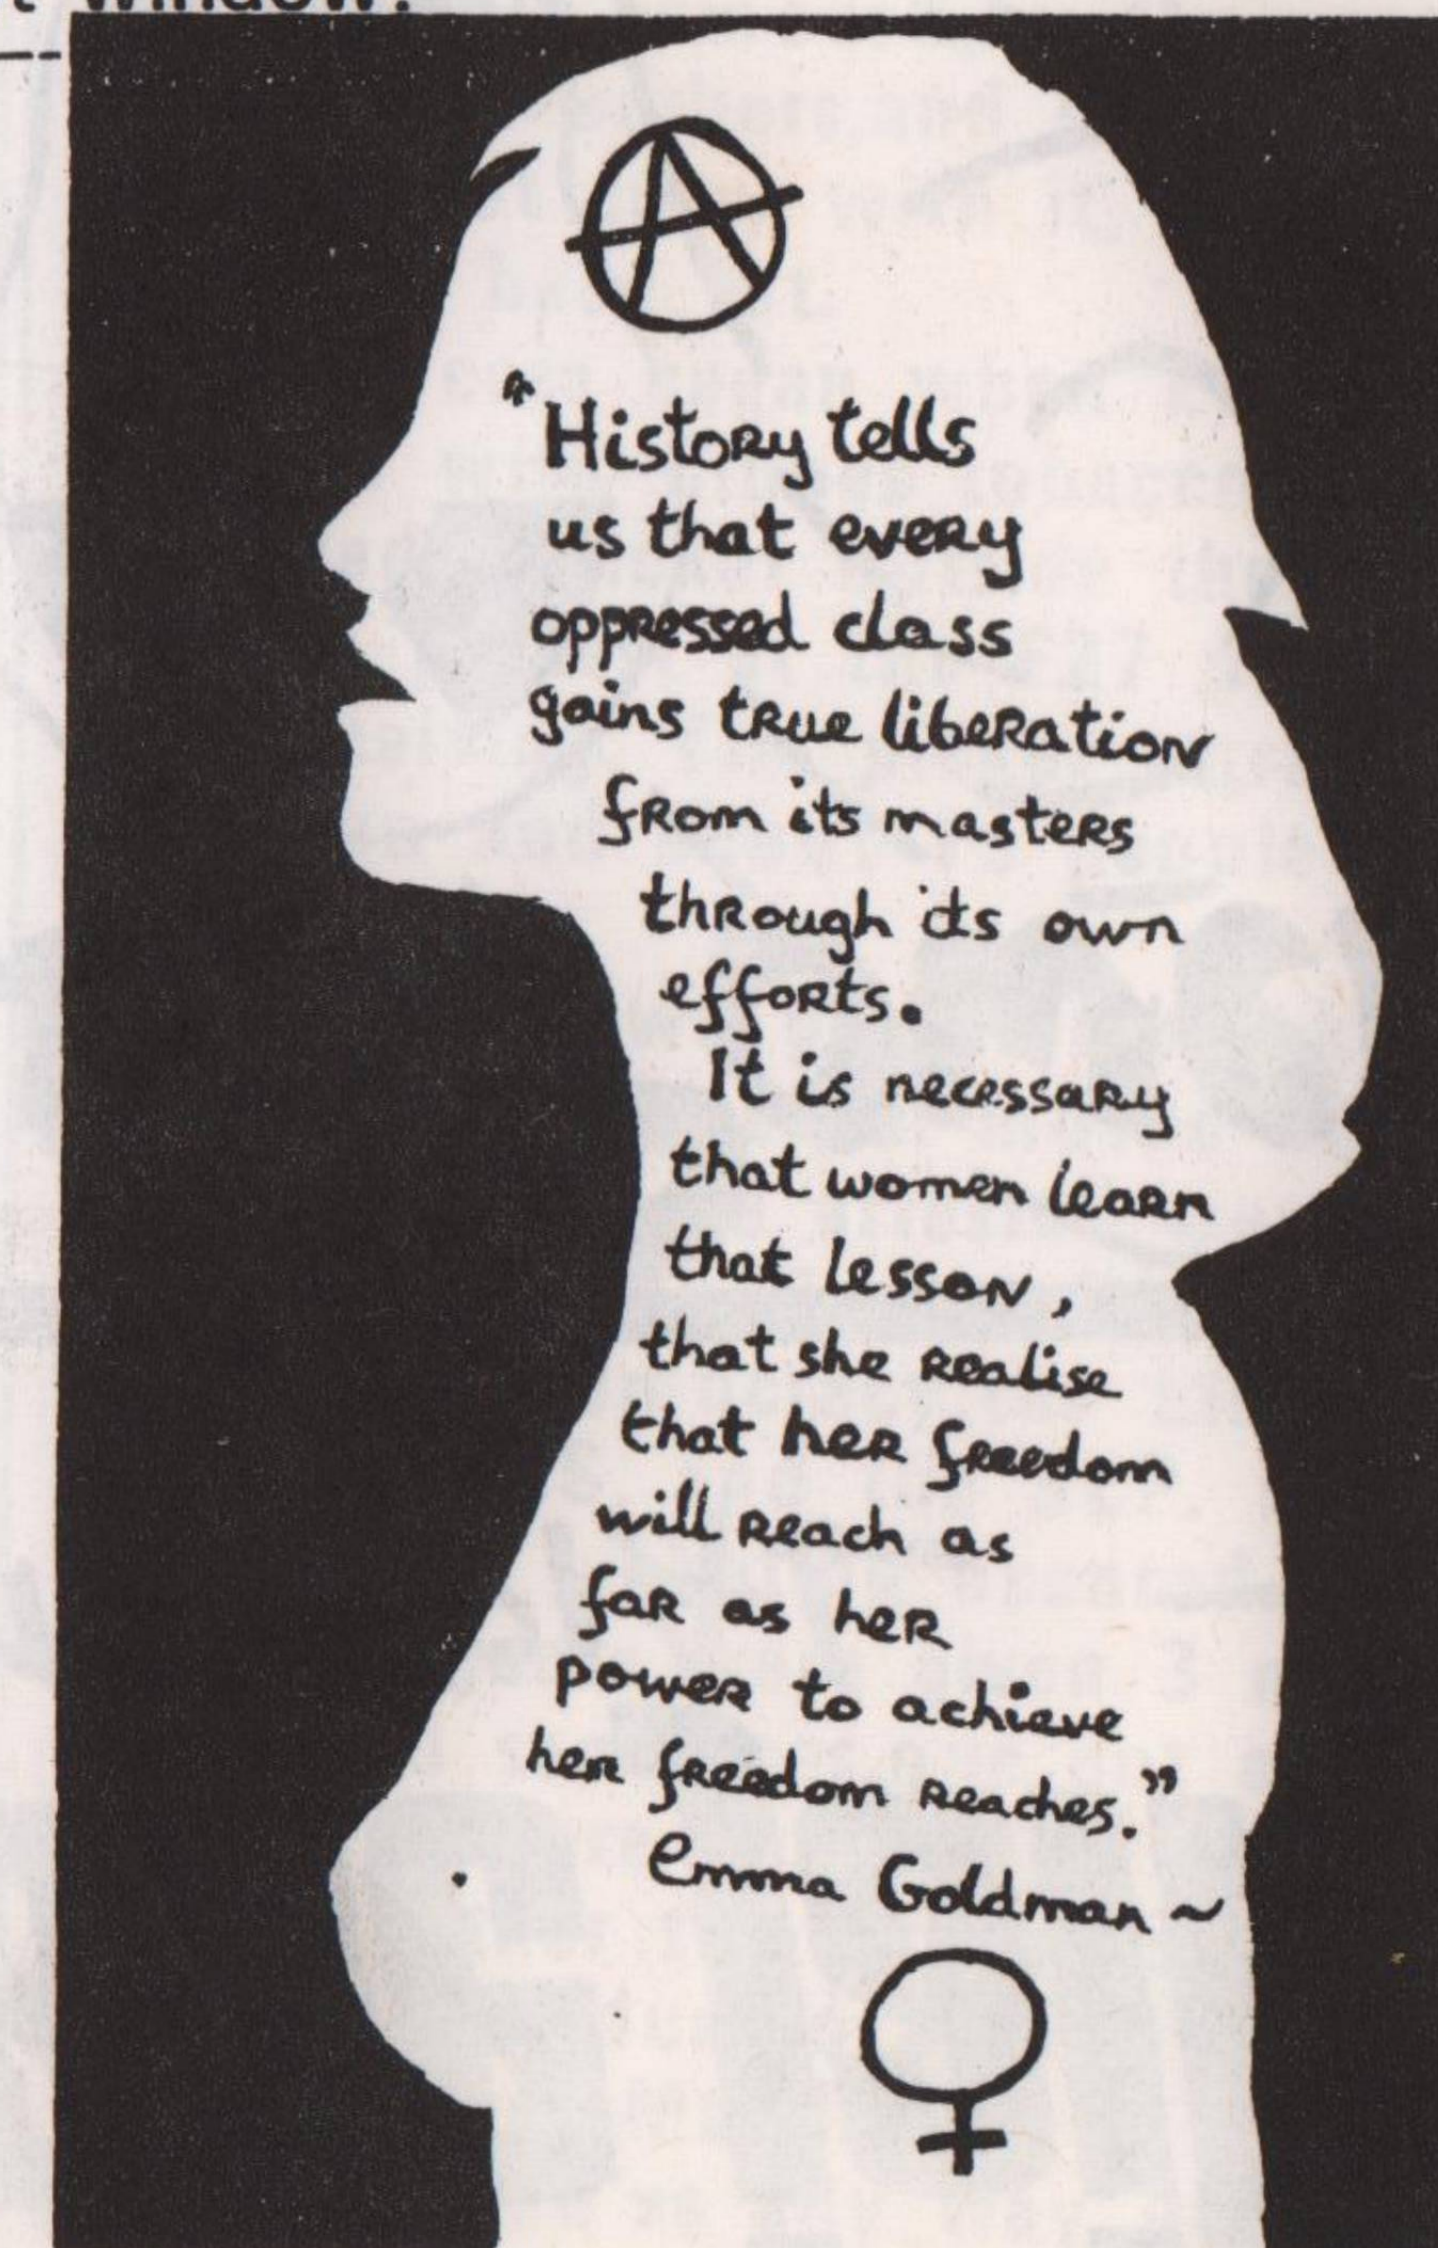 window.
Ⓐ
"History tells
us that every
oppressed class
gains true liberation
from its masters
through its own
efforts.
It is necessary
that women learn
that lesson,
that she realise
that her freedom
will reach as
far as her
power to achieve
her freedom reaches."
Emma Goldman ~